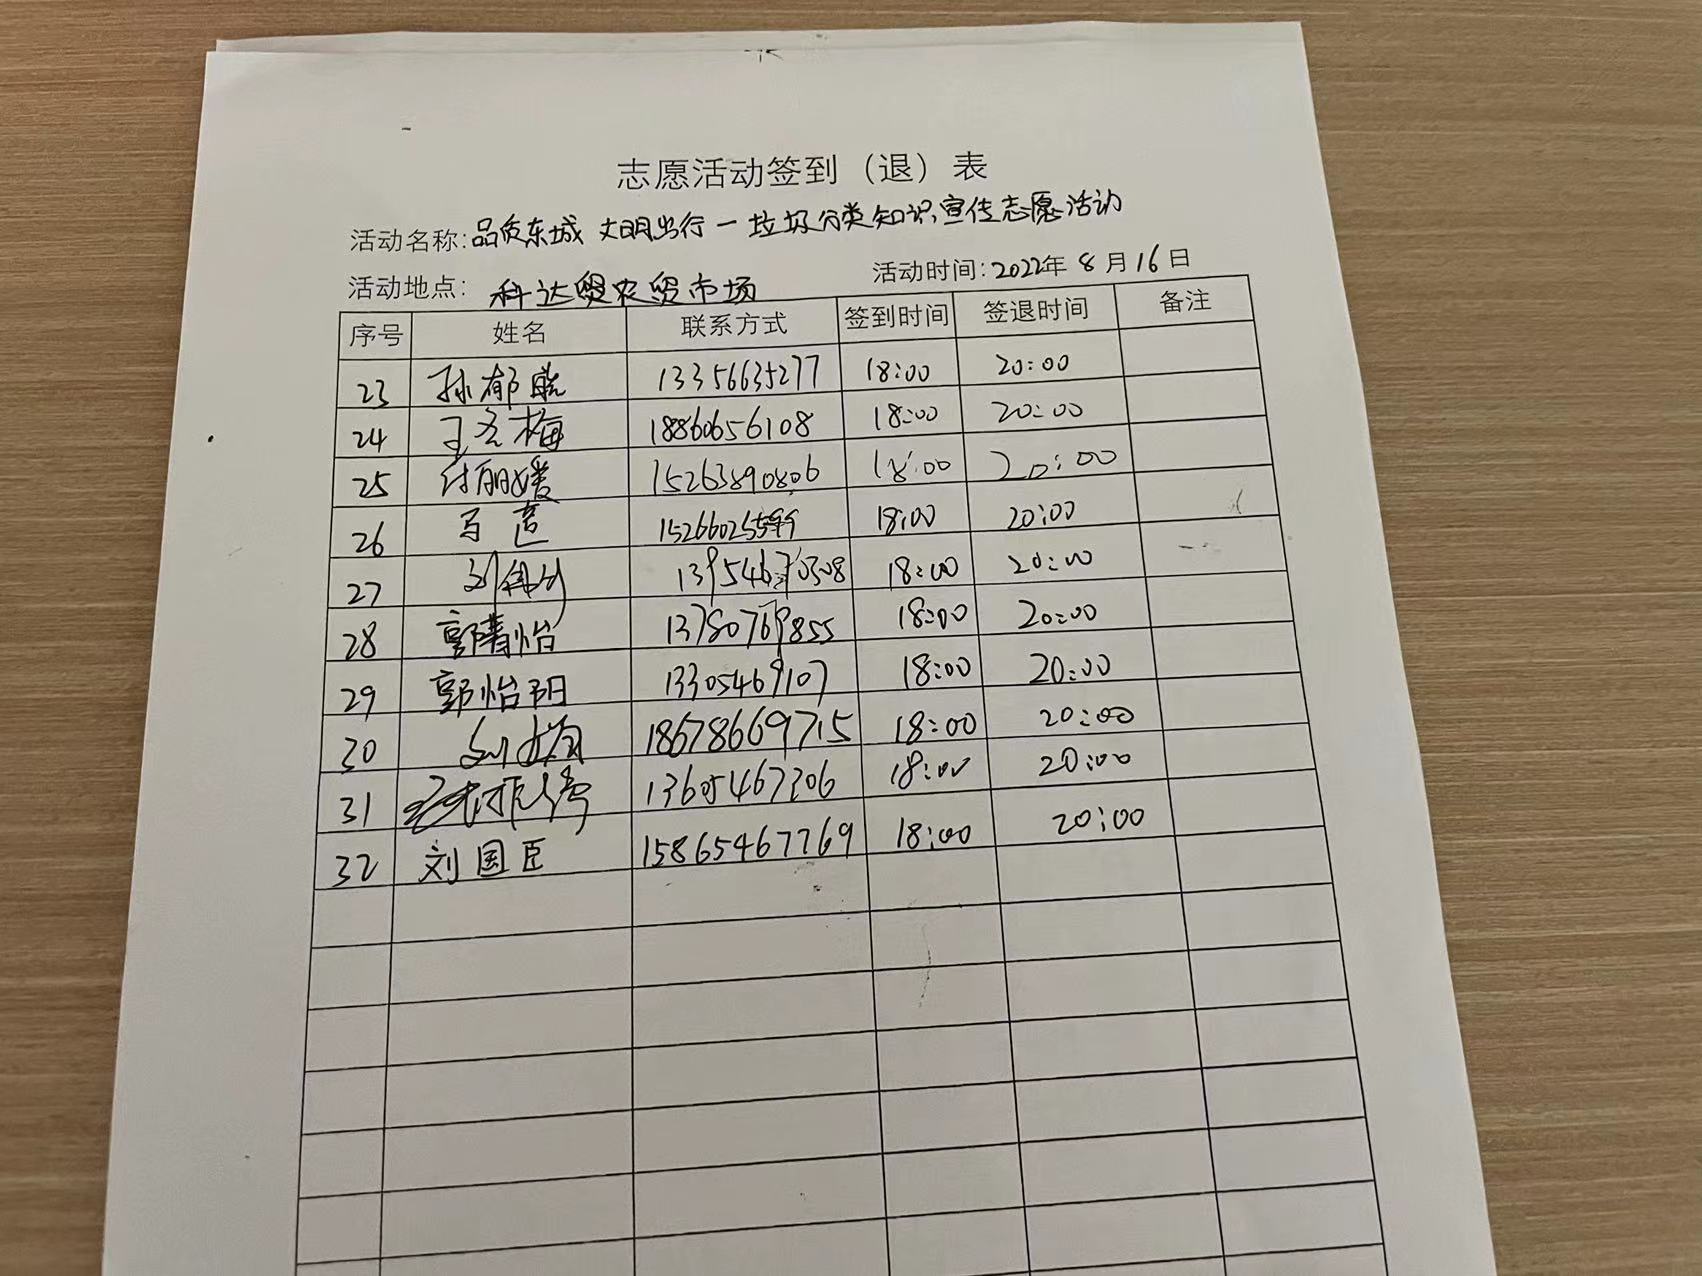 志愿活动签到（退）表
活动名称：品质东城 文明出行一垃圾分类知识宣传志愿活动
活动地点： 科达贸农贸市场 活动时间：2022年8月16日
序号 姓名 联系方式 签到时间 签退时间 备注
23 孙郁 13356635277 18:00 20:00
24 王 梅 18860656108 18:00 20:00
25 付丽媛 15263890806 18:00 20:00
26 18:00 20:00
27 刘 18:00 20:00
28 郭清怡 13780769855 18:00 20:00
29 郭怡阳 13305469107 18:00 20:00
30 刘 18678669715 18:00 20:00
31 18:00 20:00
32 刘国臣 15865467769 18:00 20:00